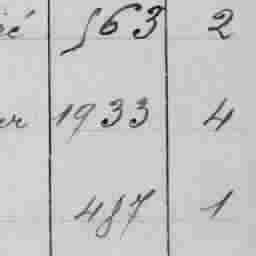 é 563 2
er 1933 4
487 1